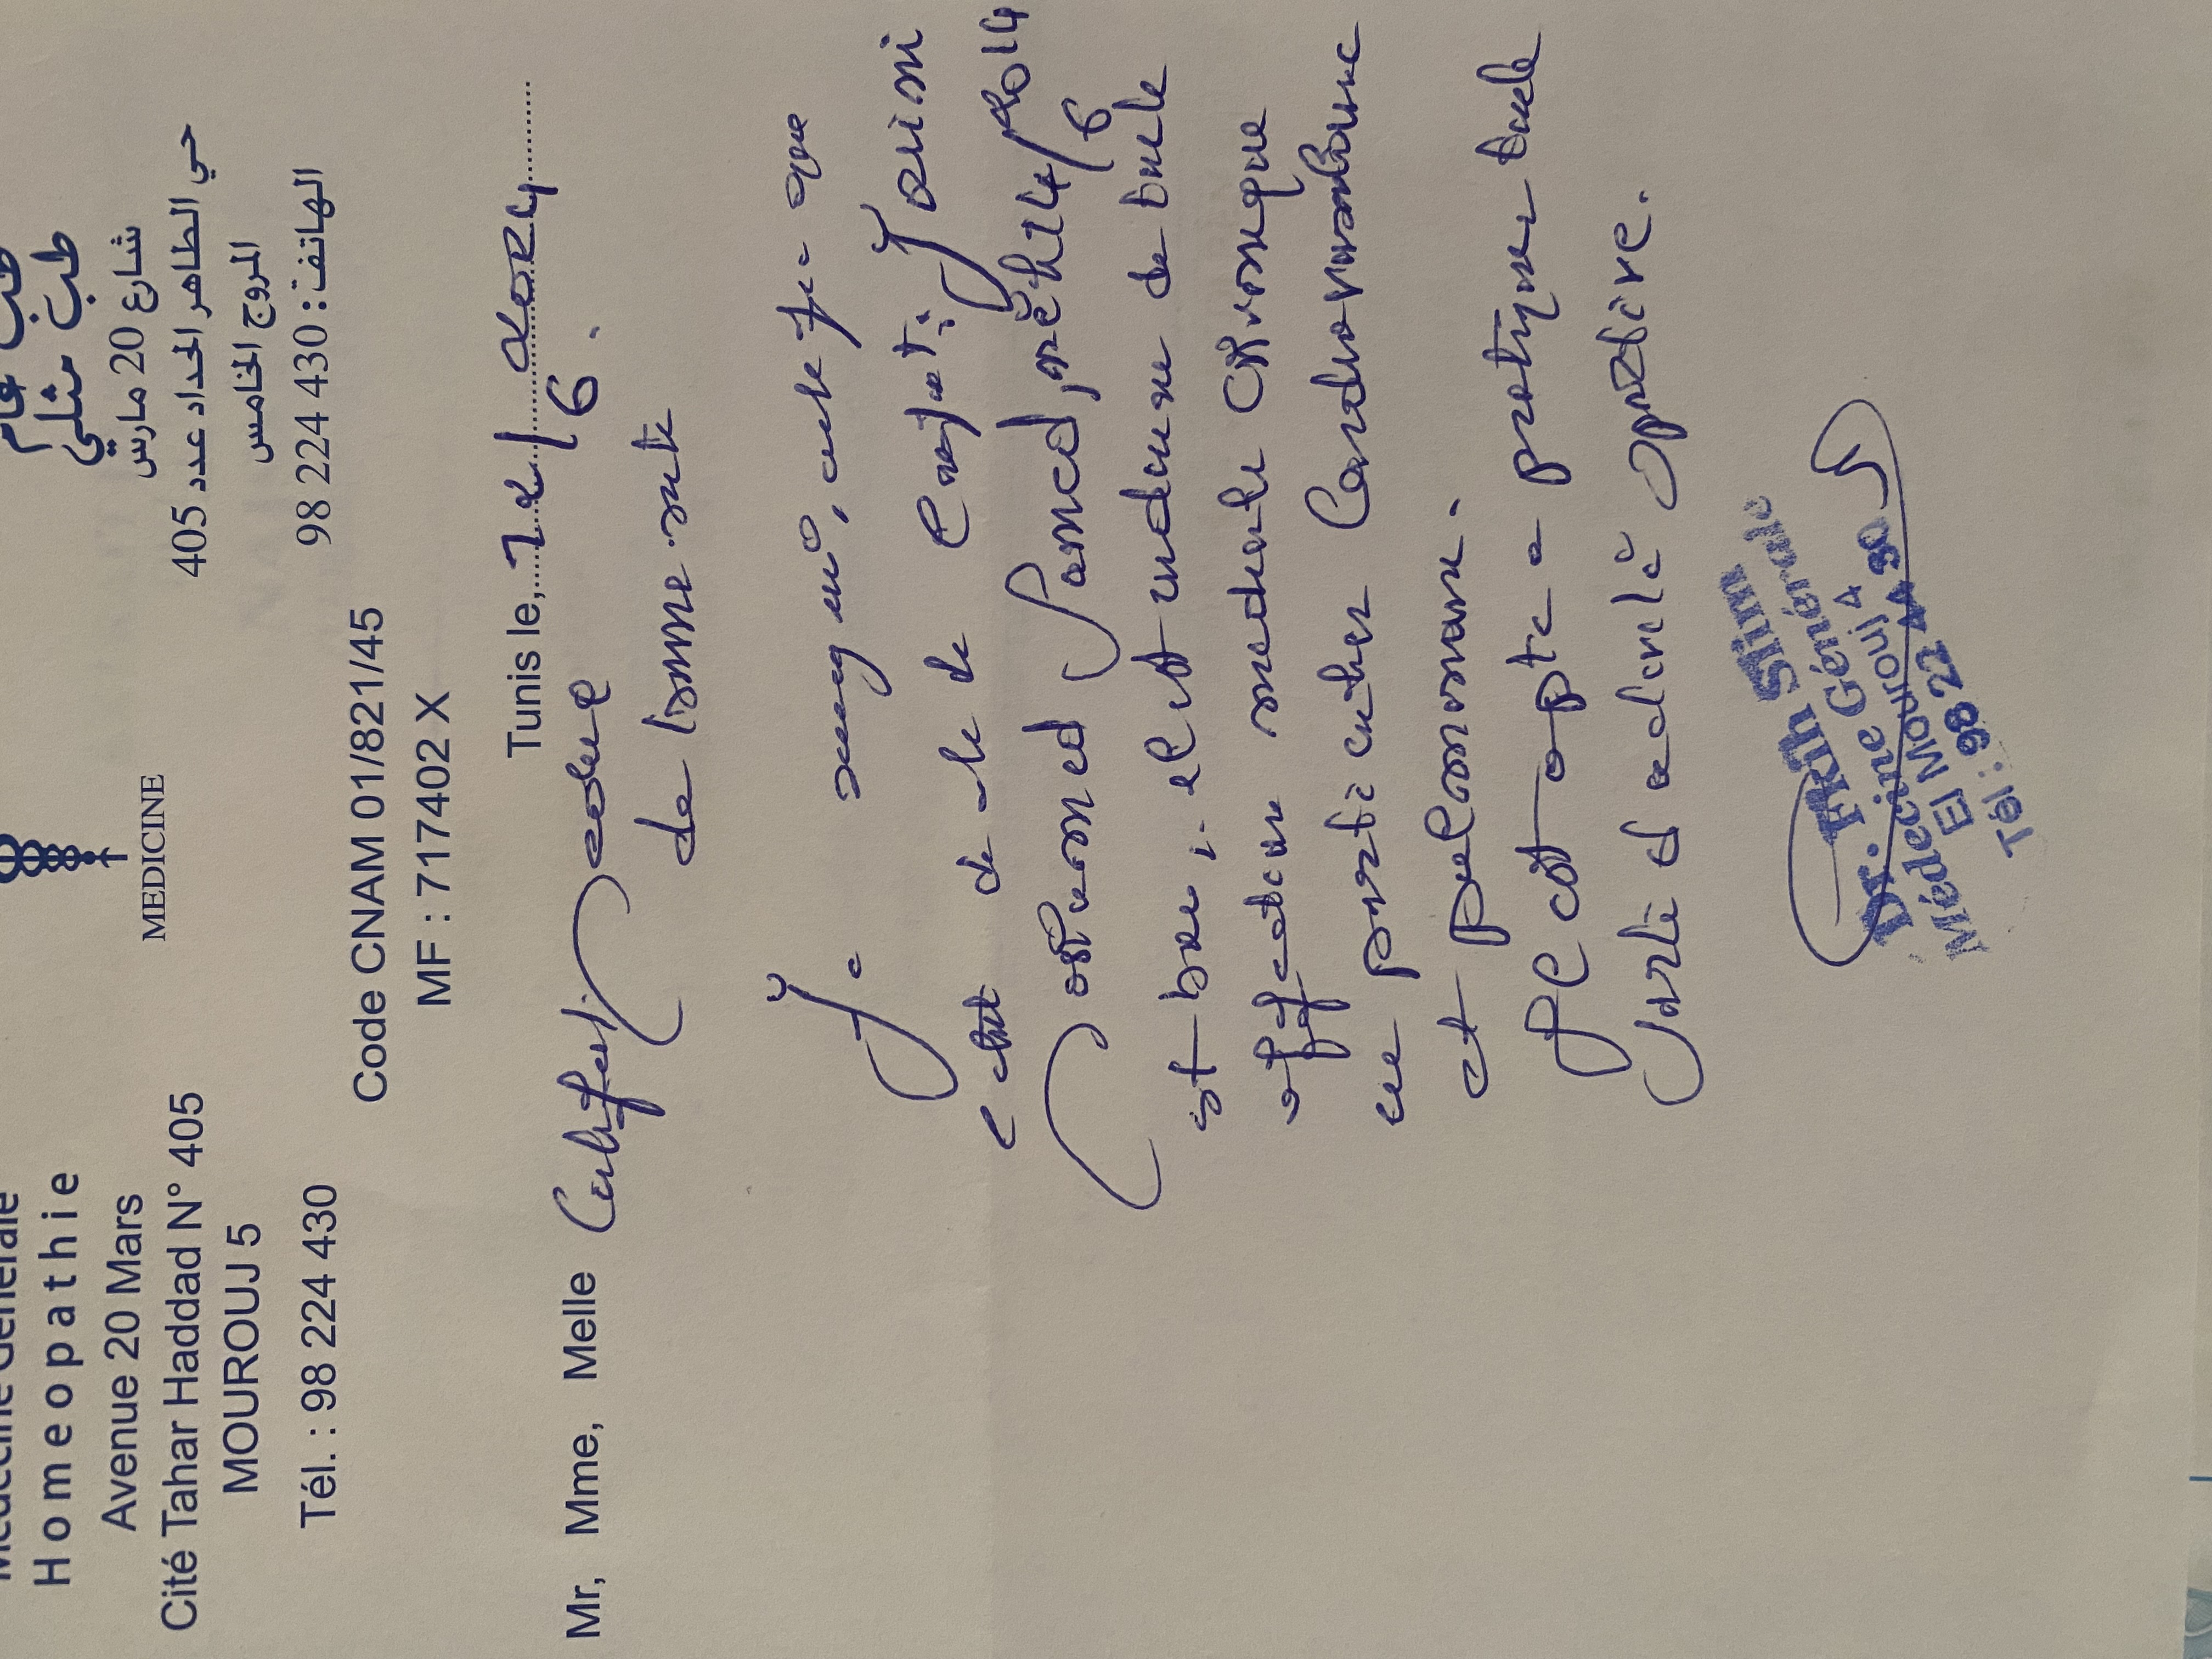 Médecine Générale
Homeopathie
Avenue 20 Mars
Cité Tahar Haddad N° 405
MOUROUJ 5
Tél. : 98 224 430
MEDICINE
طب عام
طب مثلي
شارع 20 مارس
حي الطاهر الحداد عدد 405
المروج الخامس
الهاتف : 98 224 430
Code CNAM 01/821/45
MF : 717402 X
Tunis le, 12/6 2024
Mr, Mme, Melle Certificat
de bonne santé
Je soussigné, certifie que
l'état de de l'enfant :
né le 14/6/2014
est bon ; il est indemne de toute
affection médicale chronique
en particulier Cardiovasculaire
et pulmonaire.
Il est apte a pratiquer toute
sorte d'activité sportive.
Dr. Slim
Médecine Générale
El Mourouj 4
Tél : 98 22 44 30